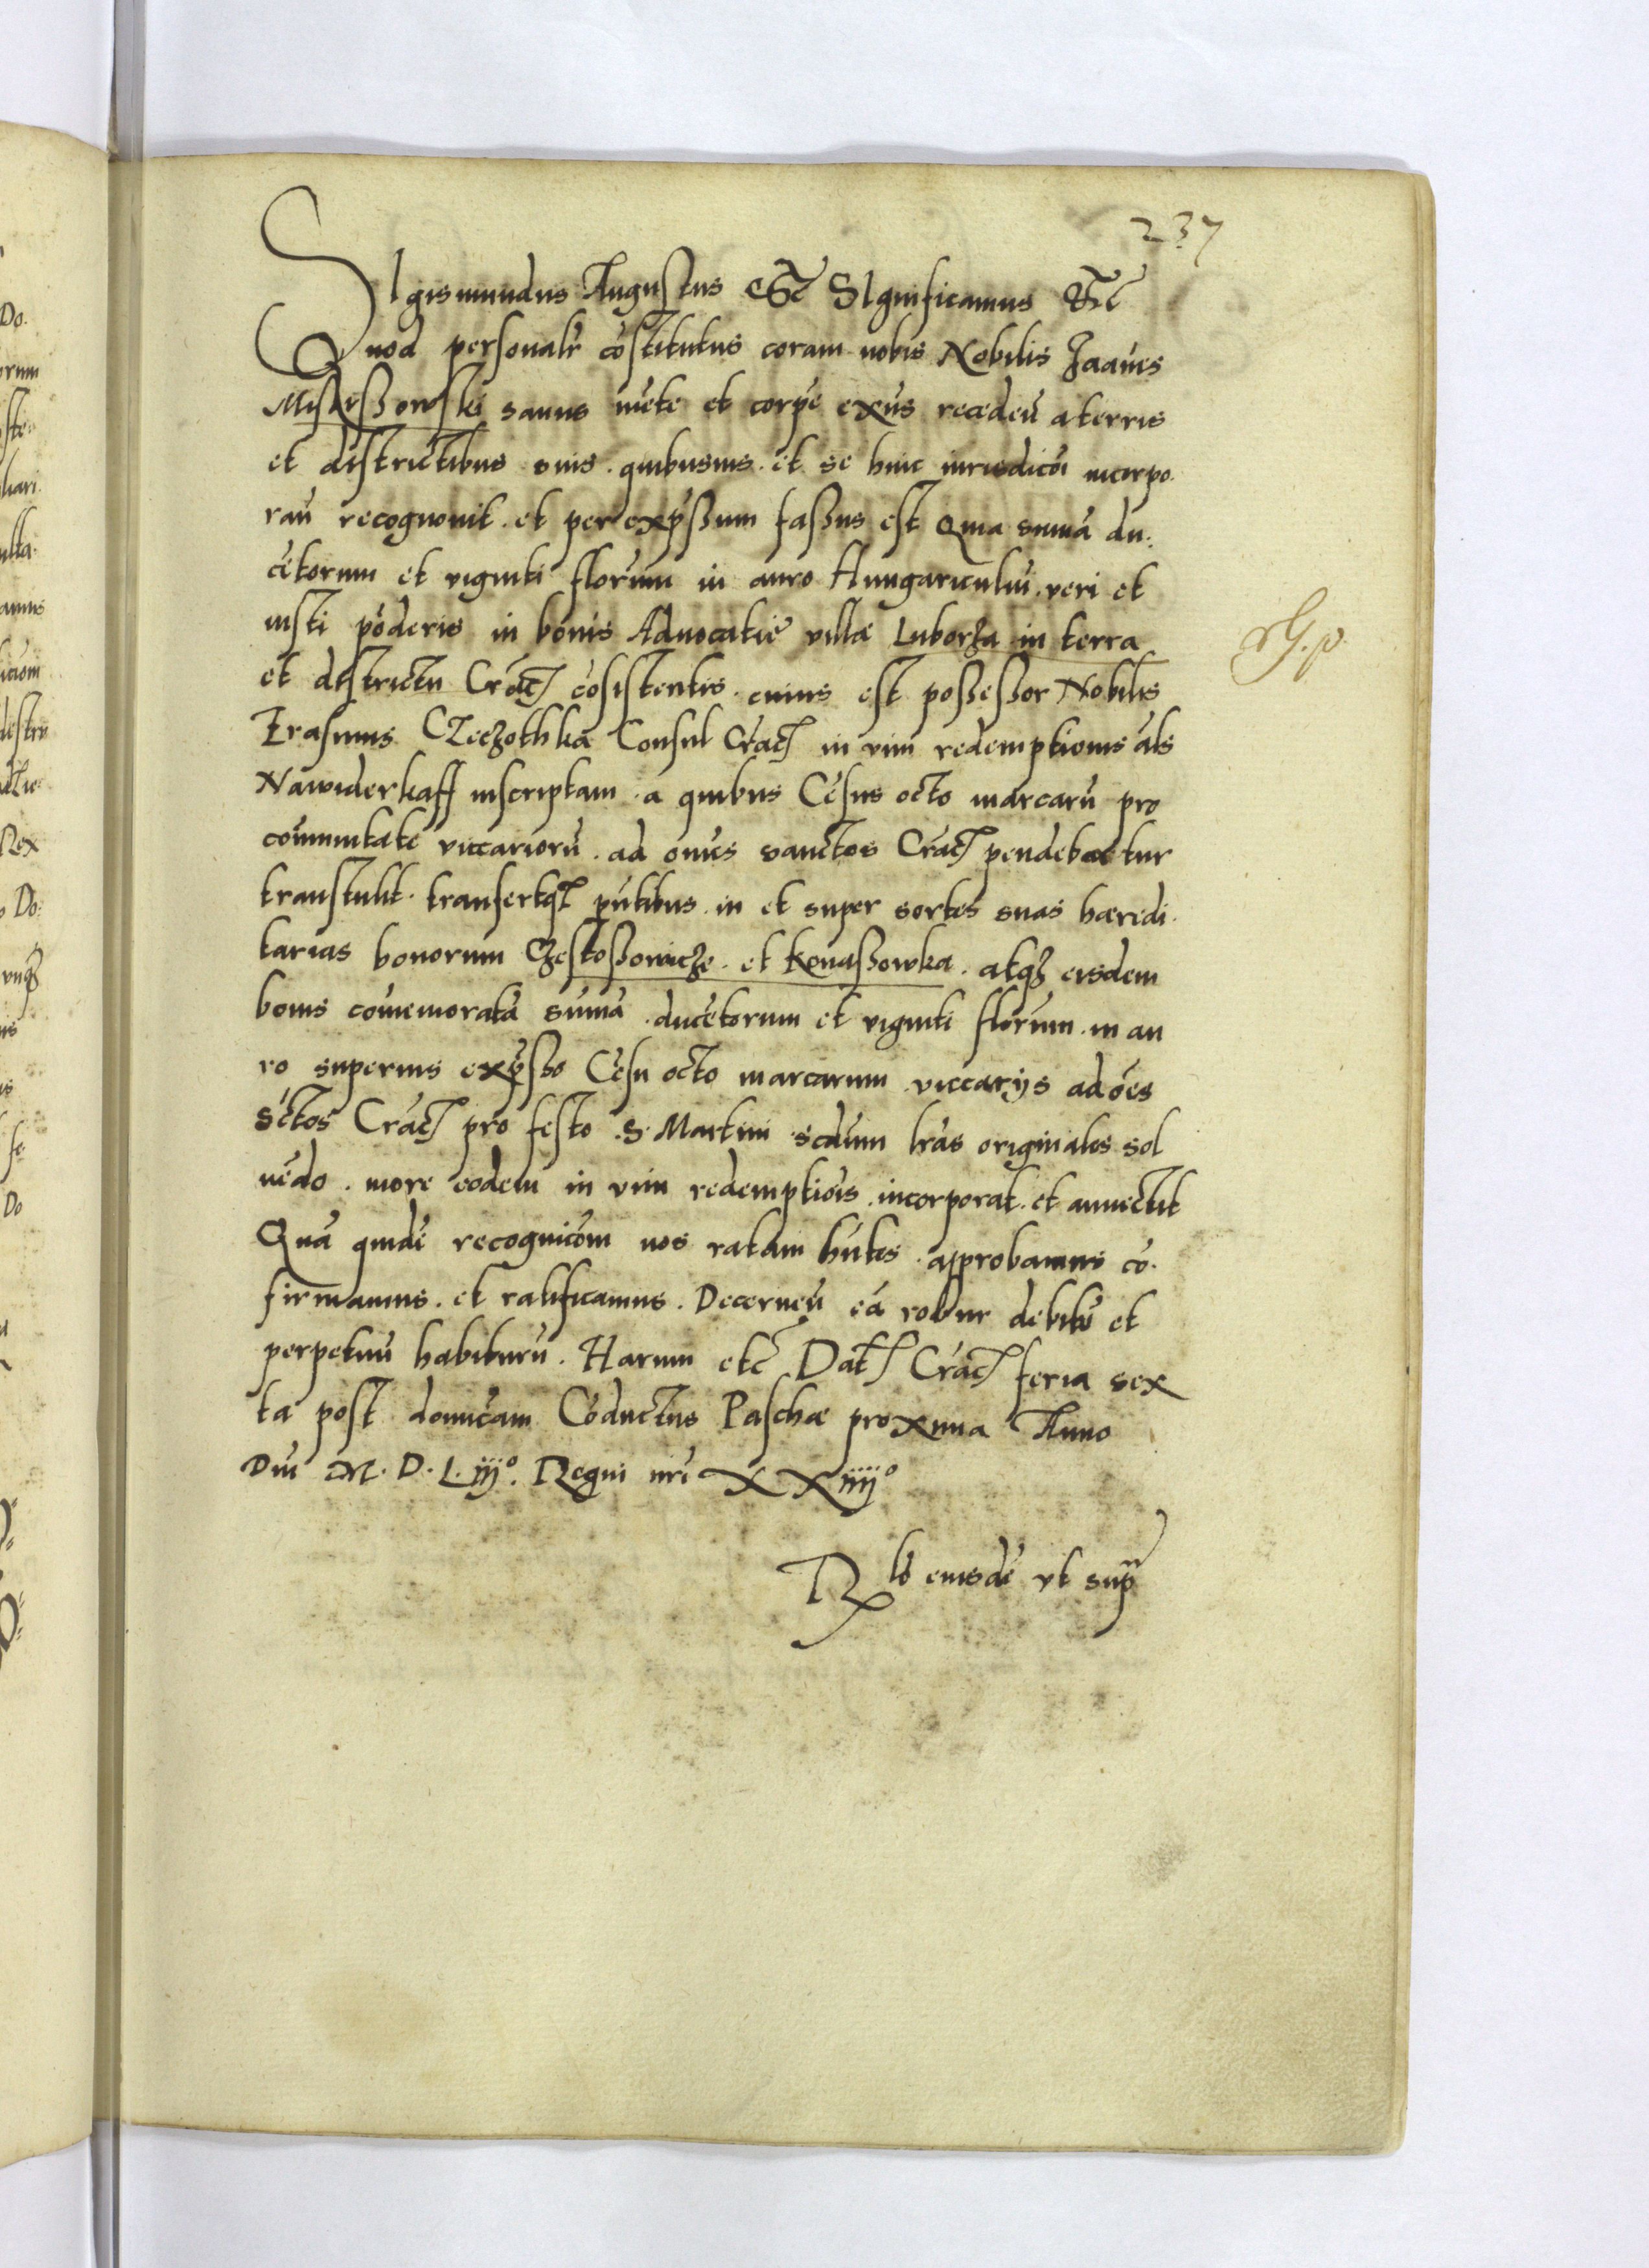 237
SIgismundus Augustus Etc̃ SIgnificamus Etc̃
Quod personalr̃ cõstitutus coram nobis Nobilis Joanes
Miskißowski sanus mẽte et corpe exn̄s recedeñ a terris
et districtibus suis. quibusuis. et se huic iurisdicõi incorpo.
rañ recognouit. et per expr̃ßum faßus est Quia sumã du.
cẽtorum et viginti florum in auro Hungariculiũ. veri et
iusti põderis in bonis Aduocatiẽ villæ Luborza in terra
et districtu Crac̃ cõsistentis. cuius est poßeßor Nobilis
Erasmus CZeczothka Consul Crac̃ in vim redemptionis als̃
Nawiderkaff inscriptam. a quibus Cẽsus octo marcarũ pro
cõmunitate viccariorũ. ad omẽs sanctos Crac̃ pendebatur
transtulit. transfertq̃ pñtibus. in et super sortes suas hæredi.
tarias bonorum Czestoßowicze. et Konaßowka. atqz eisdem
bonis cõmemoratã sumã. ducẽtorum et viginti florum. in au
ro superius expr̃sso Cẽsu octo marcarum viccarijs ad oẽs
sc̃tos Crac̃ pro festo .S. Martini scdum lr̃as originales sol
uẽdo. more eodem in vim redemptiõis. incorporat. et annectit
Quã quidẽ recognicõm nos ratam hñtes. approbamus cõ.
firmamus. et ratificamus. Decerneñ eã robur debitũ et
perpetuũ habiturũ. Harum etc̃ Dat̃ Crac̃ feria sex
ta post domicam Cõductus Paschæ proxima Anno
Dni M. D. L. iijº. Regni nr̃i XXiiijº
R̃lõ eiusdẽ vt supr̃